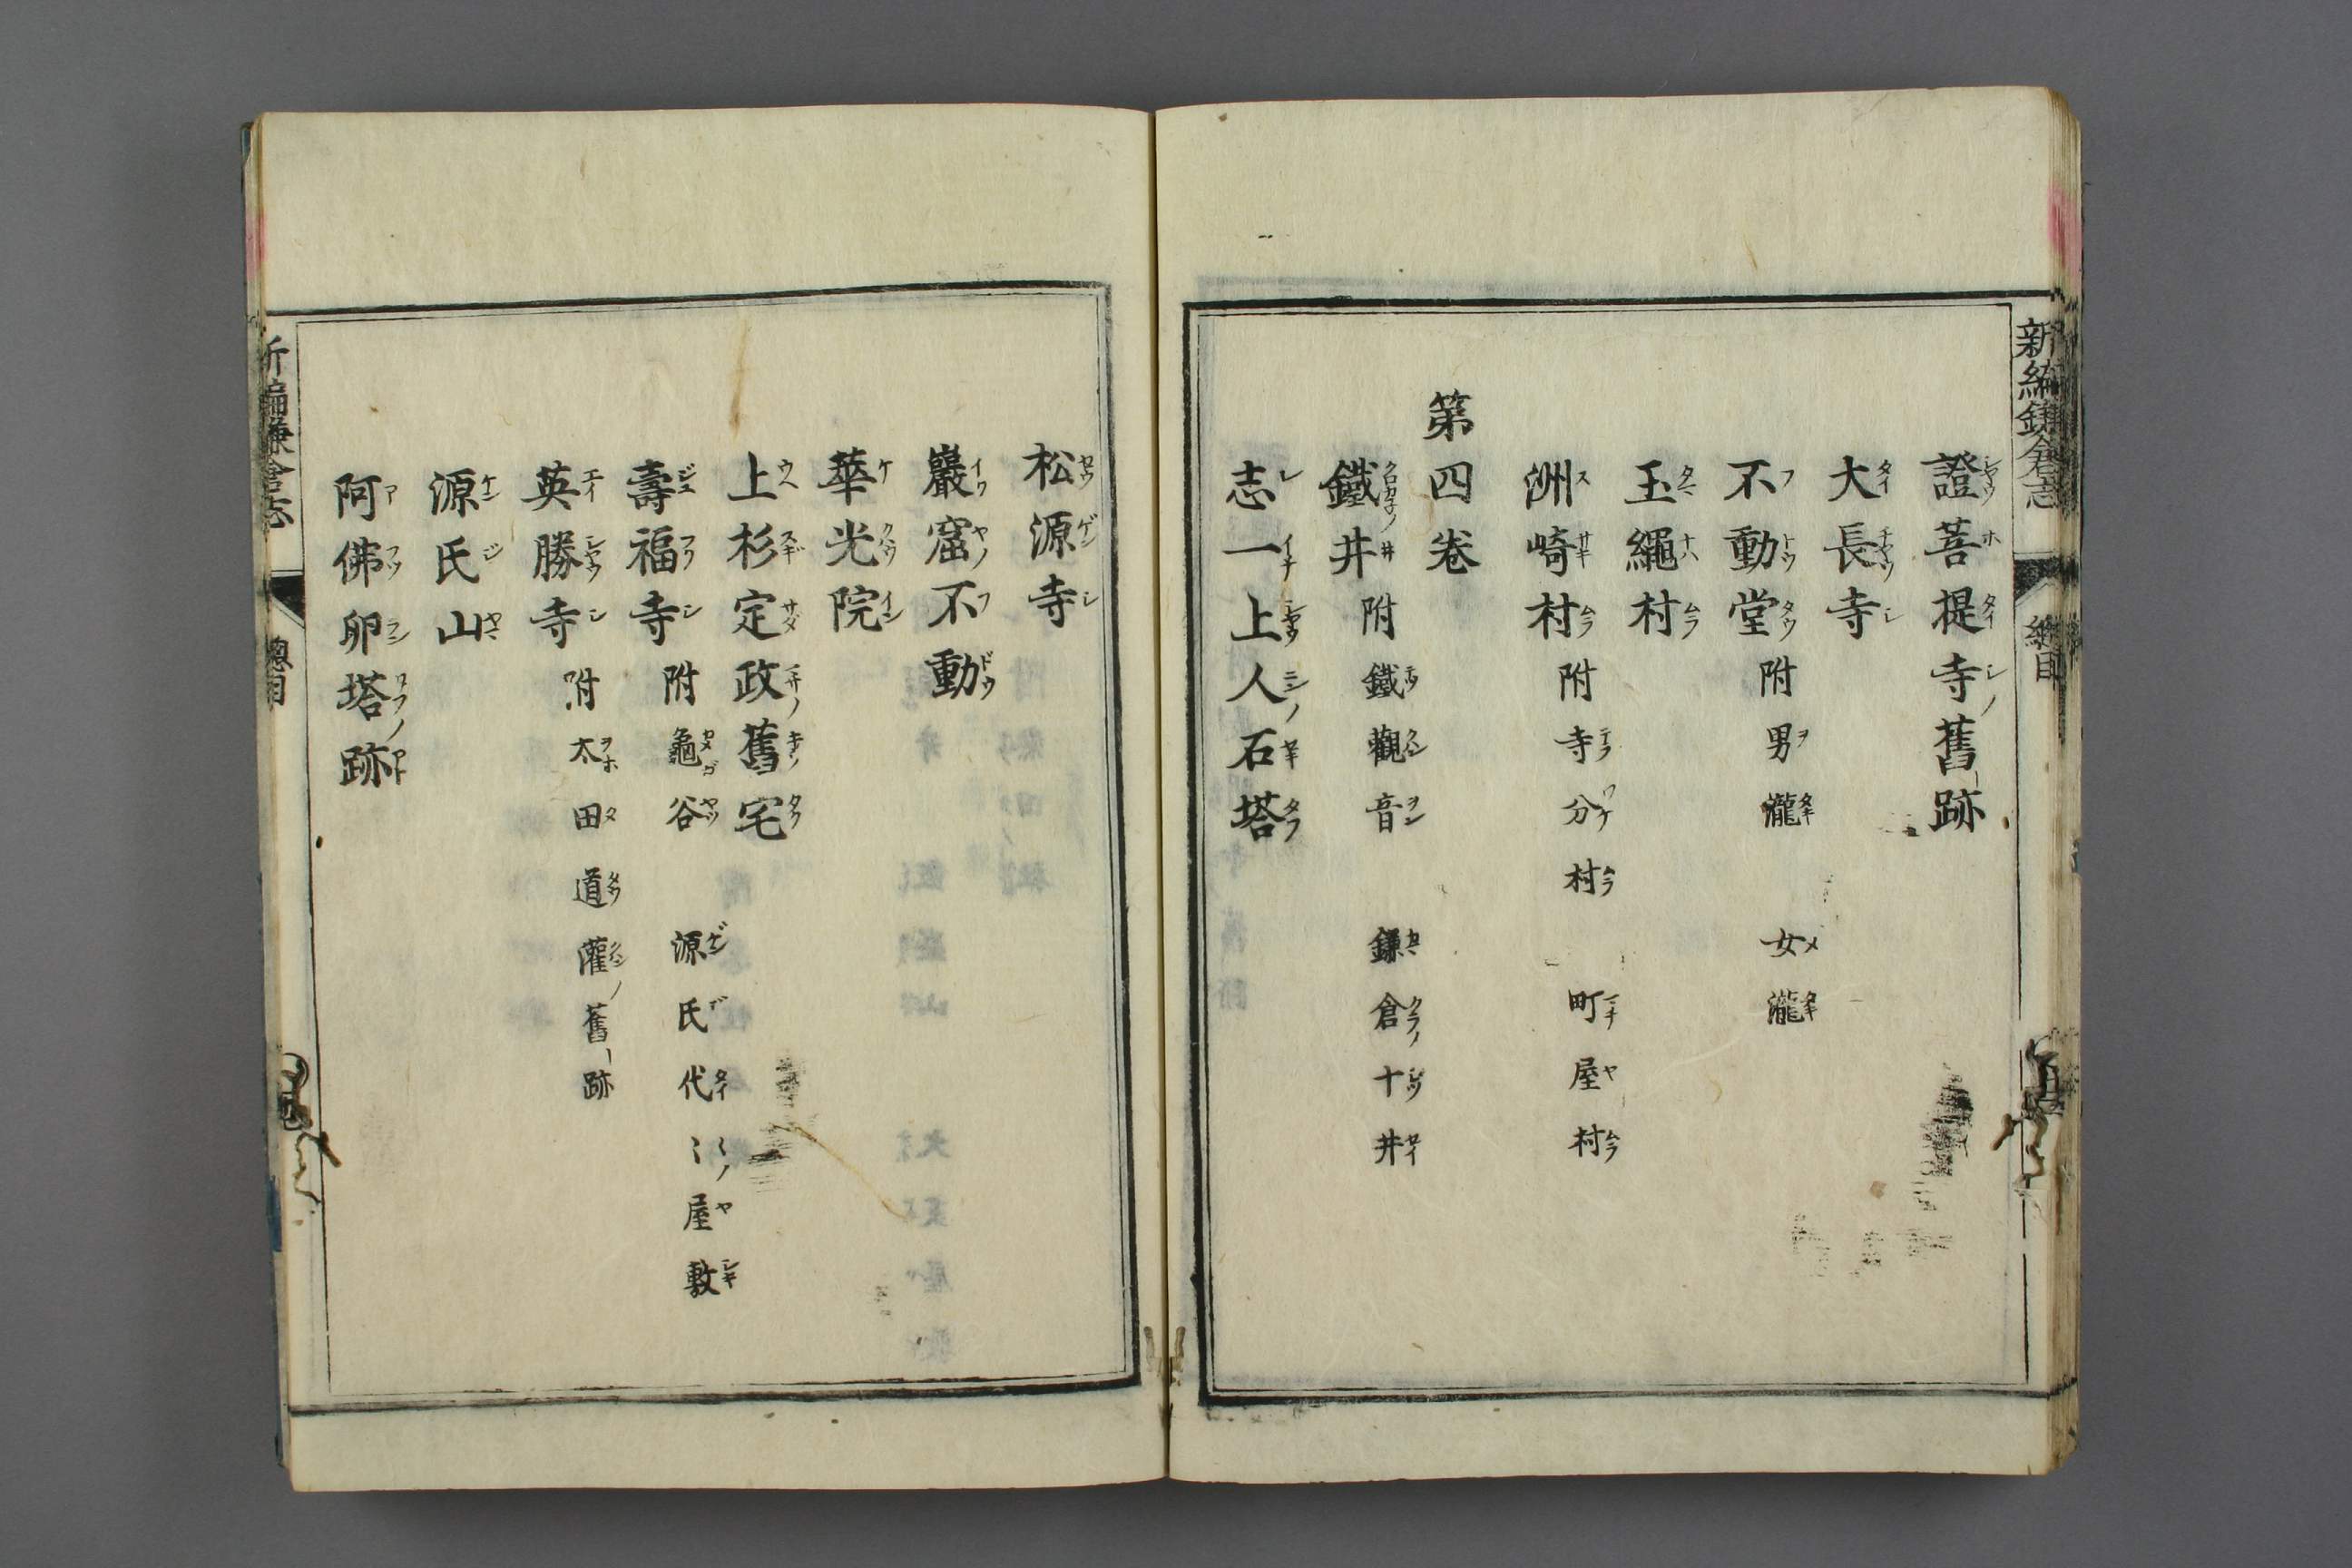 新編鎌倉志
總目
證菩提寺ノ舊跡
大長寺
不動堂 附 男瀧 女瀧
玉繩村
洲崎村 附 寺分村 町屋村
第四卷
鐵井 附 鐵觀音 鎌倉十井
志一上人ノ石塔
松源寺
巖窟不動
華光院
上杉定政ノ舊宅
壽福寺 附 龜谷 源氏代〻ノ屋敷
英勝寺 附 太田道灌ノ舊跡
源氏山
阿佛卵塔ノ跡
新編鎌倉志
總目